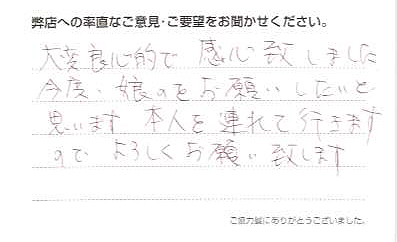 弊店への率直なご意見・ご要望をお聞かせください。
大変良心的で 感心致しました
今度、娘のをお願いしたいと
思います 本人を連れて行きます
ので よろしくお願い致します
ご協力誠にありがとうございました。